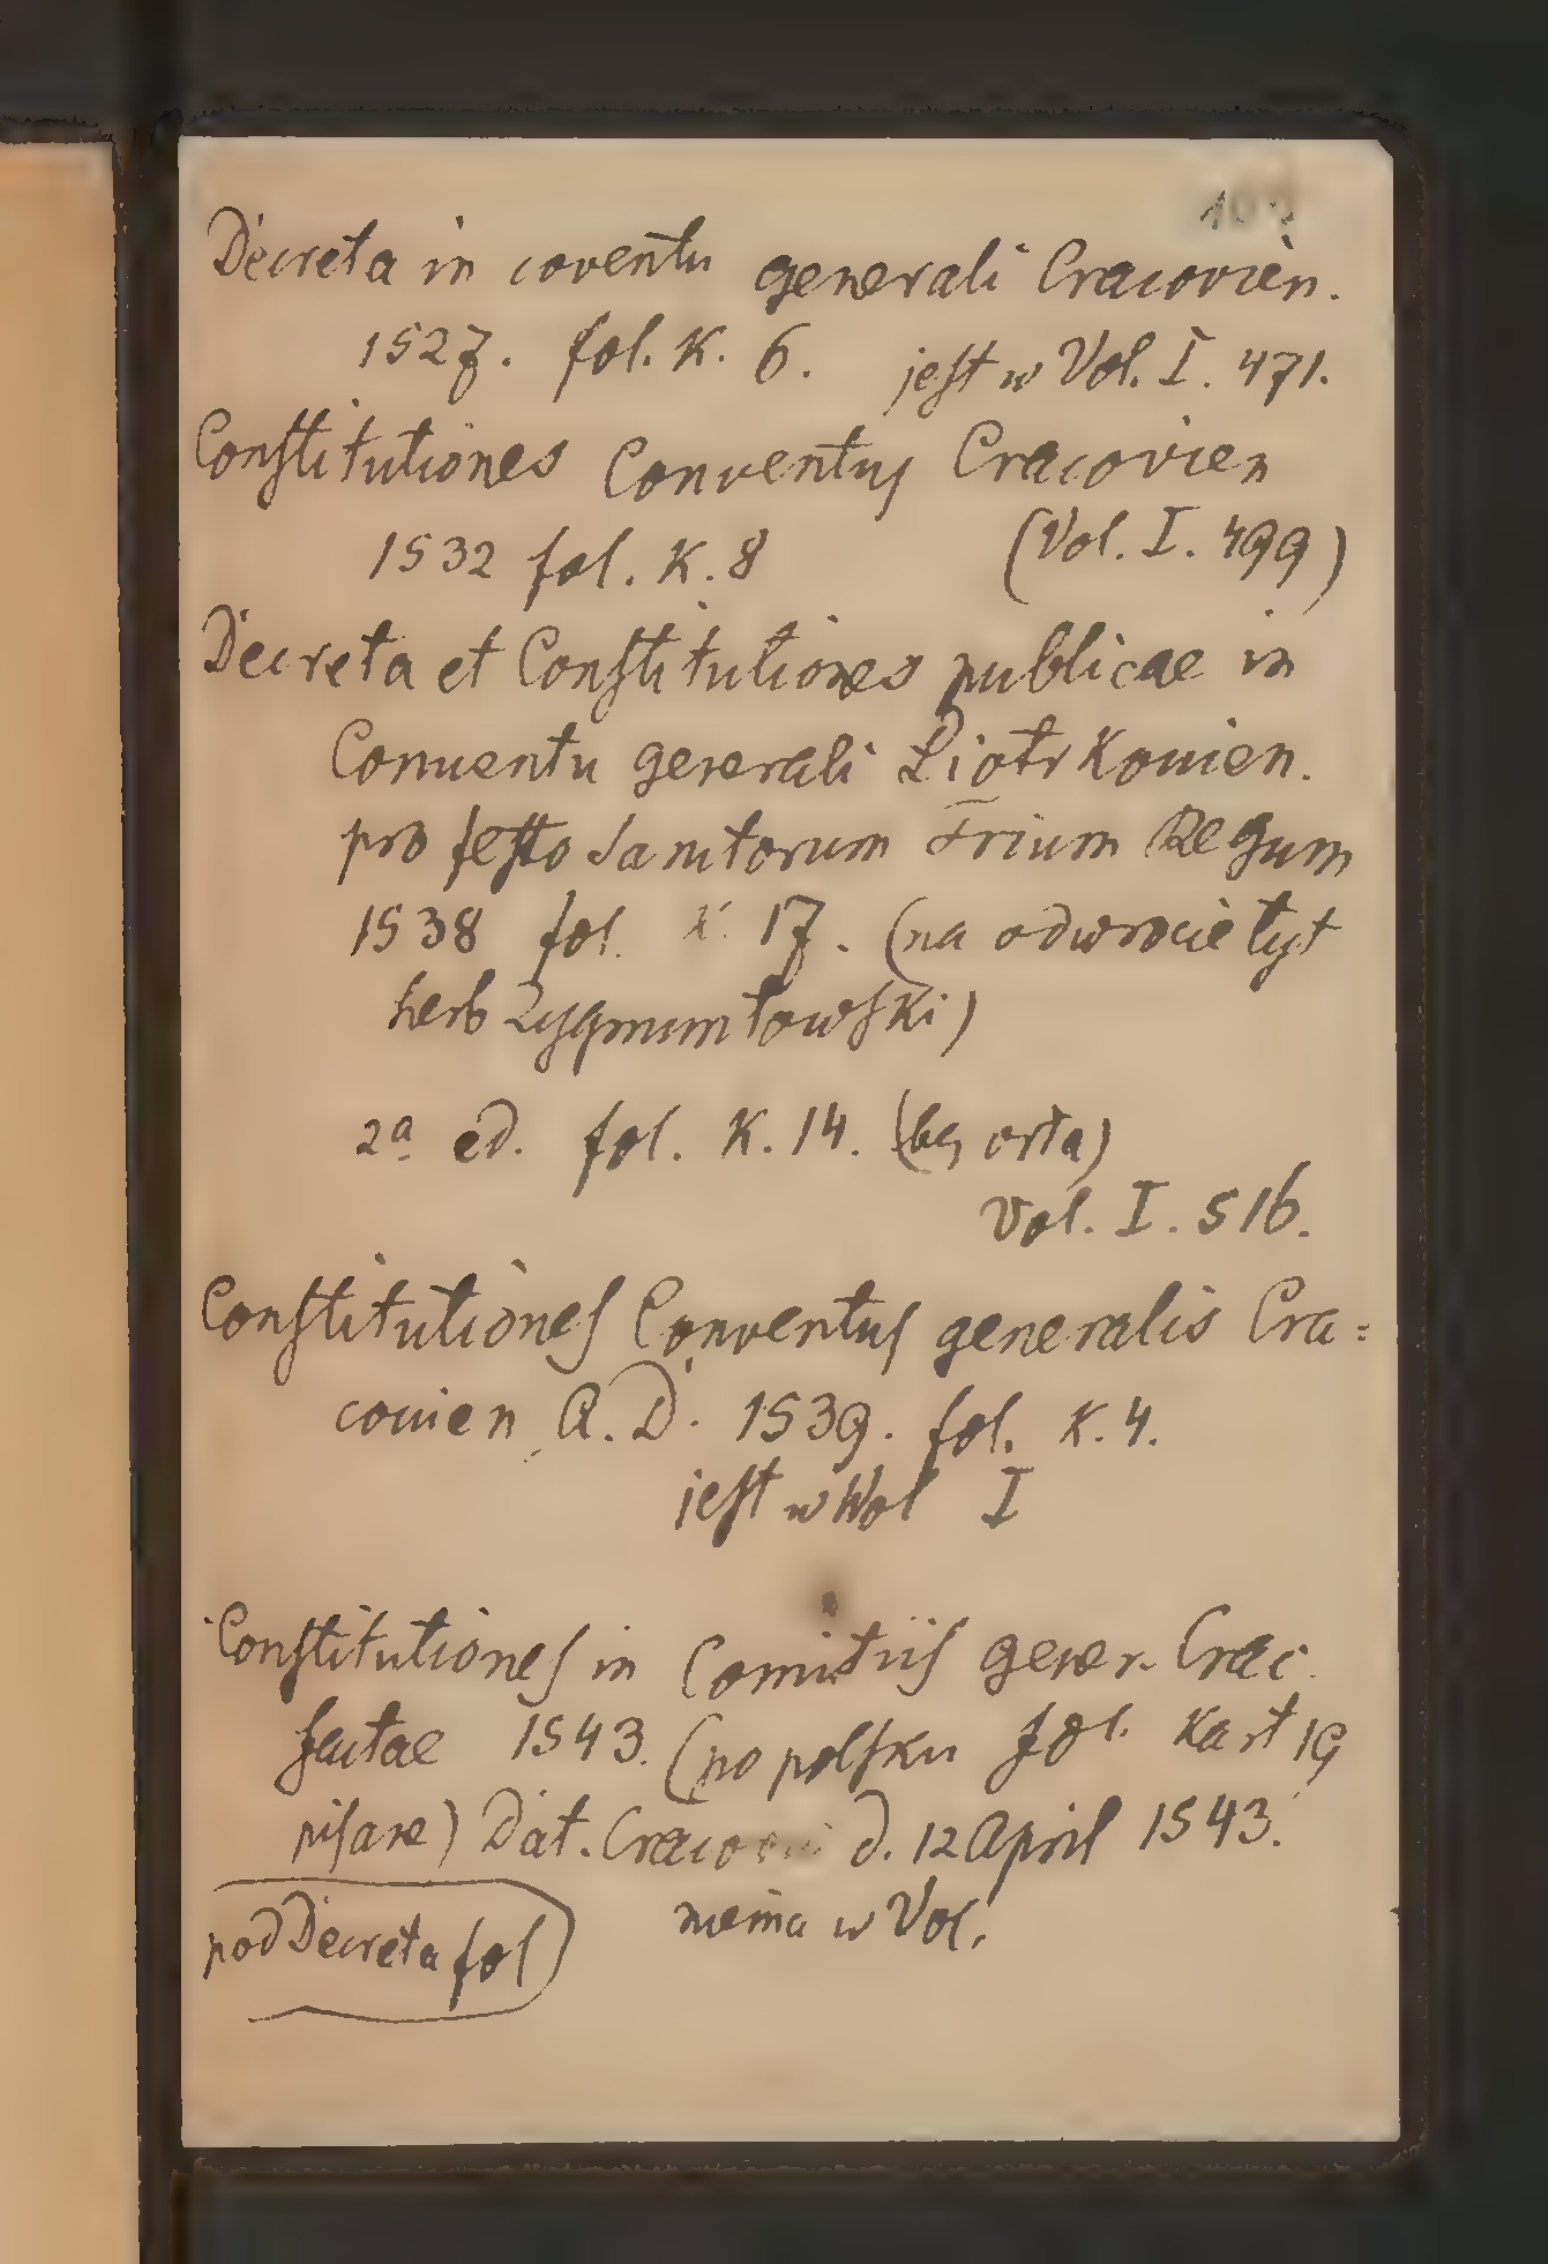 Decreta in coventu generali Cracovien.
1527. fol. K. 6. jeſt w Vol. I. 471.
Conſtitutiones Conventus Cracovien
1532 fol. K. 8 (Vol. I. 499)
Decreta et Conſtitutiones publicae in
Conuentu generali Piotrkouien.
pro feſto Sanctorum Trium Regum
1538 fol. K. 17. (na odwrocie tyt
herb Zygmuntowſki)
2ª ed. fol. K. 14. (bez orła)
Vol. I. 516.
Conſtitutioneſ Conventuſ generalis Cra=
couien A. D. 1539. fol. K. 4.
jeſt w Vol I
Conſtitutioneſ in Comitiiſ gener. Crac.
factae 1543. (po polſku fol. Kart 19
piſane) Dat. Cracov d. 12 April 1543.
niema w Vol.
pod Decreta fol